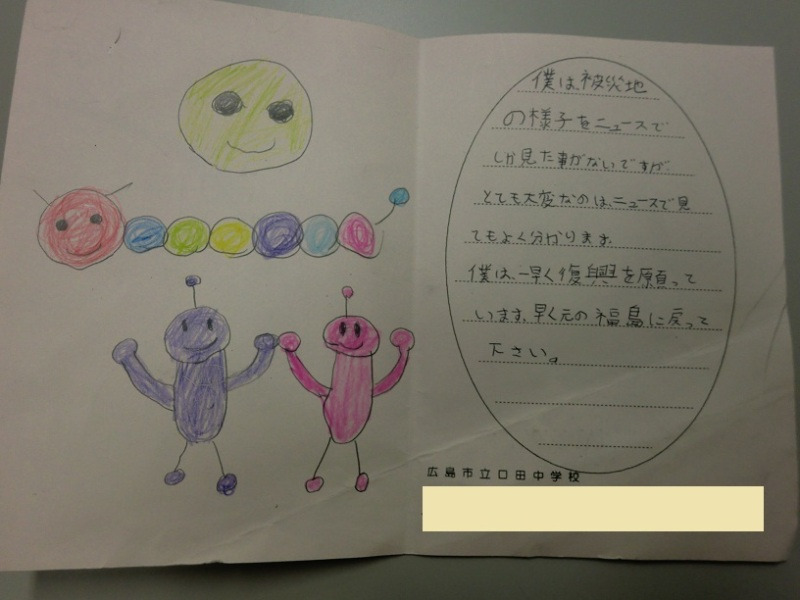 僕は、被災地
の様子をニュースで
しか見た事がないですが、
とても大変なのは、ニュースで見
てもよく分かります。
僕は、一早く復興を願って
います。早く元の福島に戻って
下さい。
広島市立口田中学校